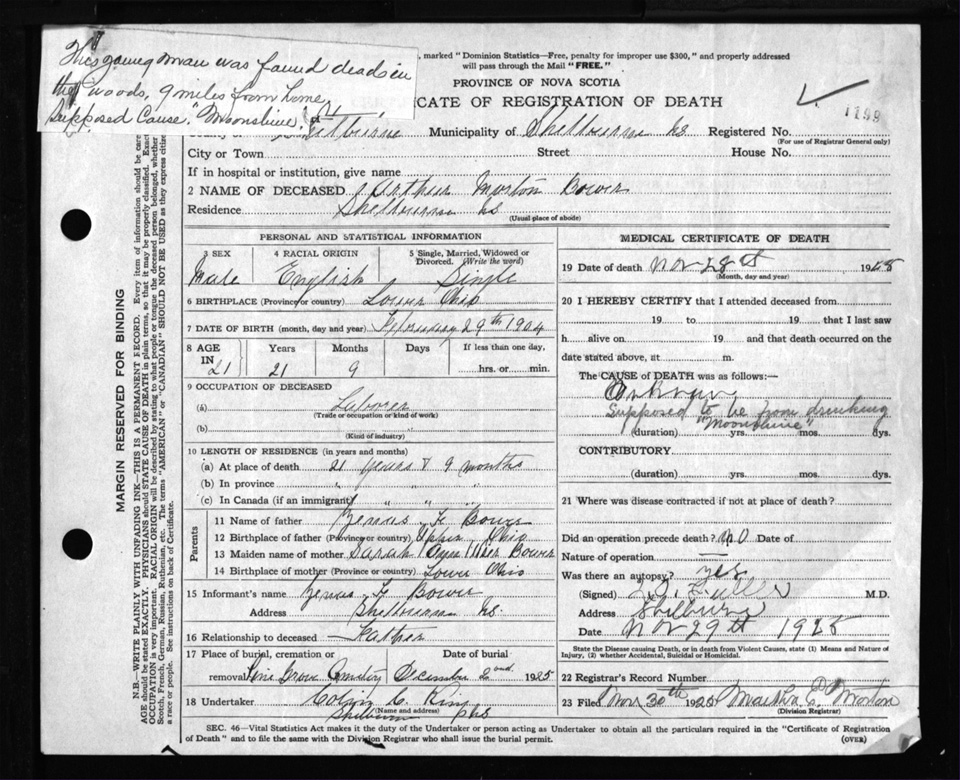 This young man was found dead in
the woods, 9 miles from home
Supposed Cause. "Moonshine"
, marked "Dominion Statistics—Free, penalty for improper use $300," and properly addressed
will pass through the Mail "FREE."
PROVINCE OF NOVA SCOTIA
CATE OF REGISTRATION OF DEATH
1199
Shelburne Municipality of Shelburne NS Registered No.
(For use of Registrar General only)
City or Town Street House No.
If in hospital or institution, give name
2 NAME OF DECEASED Arthur Morton Bower
Residence Shelburne NS
(Usual place of abode)
MARGIN RESERVED FOR BINDING
N.B.—WRITE PLAINLY WITH UNFADING INK—THIS IS A PERMANENT RECORD. Every item of information should be
AGE should be stated EXACTLY. PHYSICIANS should STATE CAUSE OF DEATH in plain terms, so that it may be properly classified. Exact
OCCUPATION is very important. RACIAL ORIGIN will be described by stating to what people or tongue the deceased person belonged, whether
Scotch, French, German, Russian, Ruthenian, etc. The terms "AMERICAN" or "CANADIAN" SHOULD NOT BE USED as they express
a race or people. See instructions on back of Certificate.
PERSONAL AND STATISTICAL INFORMATION
3 SEX 4 RACIAL ORIGIN 5 Single, Married, Widowed or
Divorced. (Write the word)
Male English Single
6 BIRTHPLACE (Province or country) Lower Ohio
7 DATE OF BIRTH (month, day and year) February 29th 1904
8 AGE Years Months Days If less than one day,
IN 21 21 9 hrs. or min.
9 OCCUPATION OF DECEASED
(a) Laborer
(Trade or occupation or kind of work)
(b) "
(Kind of industry)
10 LENGTH OF RESIDENCE (in years and months)
(a) At place of death 21 years & 9 months
(b) In province " " " "
(c) In Canada (if an immigrant) " " "
Parents
11 Name of father Zenus F Bower
12 Birthplace of father (Province or country) Upper Ohio
13 Maiden name of mother Sarah Bower
14 Birthplace of mother (Province or country) Lower Ohio
15 Informant's name Zenus F Bower
Address Shelburne NS
16 Relationship to deceased Father
17 Place of burial, cremation or Date of burial
removal Pine Grove Cemetery December 2nd 1925
18 Undertaker Colin C. King
(Name and address)
Shelburne NS
MEDICAL CERTIFICATE OF DEATH
19 Date of death Nov 28th 1925
(Month, day and year)
20 I HEREBY CERTIFY that I attended deceased from
19 to 19 that I last saw
h alive on 19 and that death occurred on the
date stated above, at m.
The CAUSE OF DEATH was as follows:—
Unknown
Supposed to be from drinking
"Moonshine"
(duration) yrs. mos. dys.
CONTRIBUTORY
(duration) yrs. mos. dys.
21 Where was disease contracted if not at place of death?
Did an operation precede death? NO Date of
Nature of operation —
Was there an autopsy? yes
(Signed) Fuller M.D.
Address Shelburne
Date Nov 29th 1925
State the Disease causing Death, or in Death from Violent Causes, state (1) Means and Nature of
Injury, (2) whether Accidental, Suicidal or Homicidal.
22 Registrar's Record Number
23 Filed Nov 30th 1925 Martha E. Morton
(Division Registrar)
SEC. 46—Vital Statistics Act makes it the duty of the Undertaker or person acting as Undertaker to obtain all the particulars required in the "Certificate of Registration
of Death" and to file the same with the Division Registrar who shall issue the burial permit. (OVER)